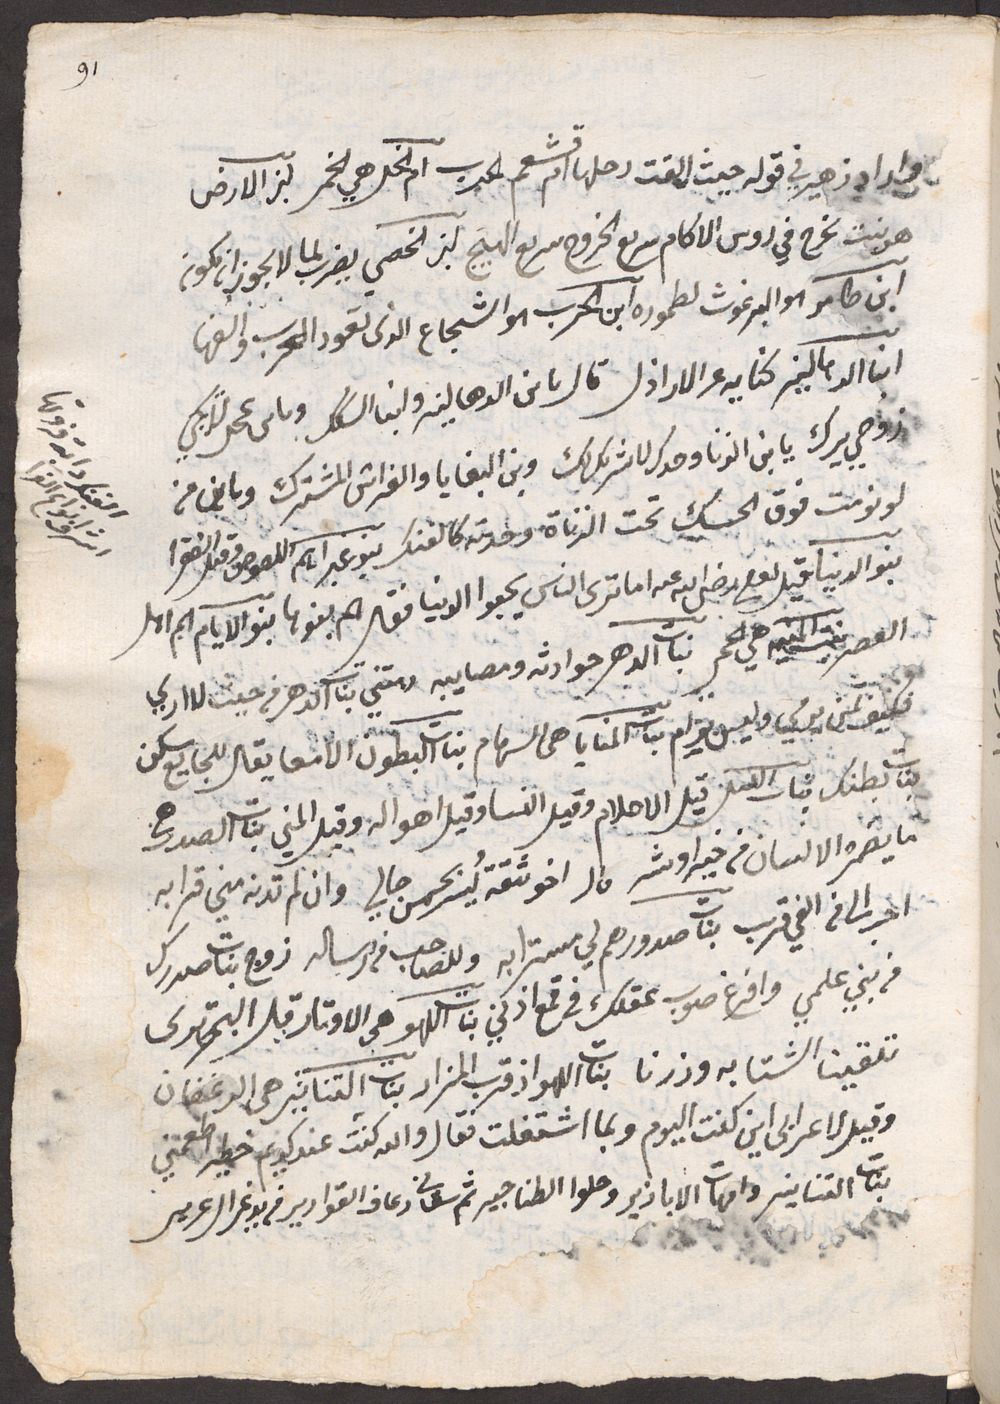 91
واراد زهير في قوله حيث القت رحلها ام قشعم الحرب ام الخل هي الخمر بنز الارض
هو نبت يخرج في روس الاكام سريع الخروج سريع الهيج بنز الخصي يضرب لما لا يجوز ان يكون
ابن طامر هو البرغوث لطموره ابن الحرب هو الشجاع الذي تعود الحرب والفها
ابنا الدهاليز كنايه عن الاراذل قال يا بن الدهاليز وابنا السكك ويا بن عجل
زوجي يرك يا بن الزنا وحدك لا شريك لك وبن البغايا والفراش المشترك ويا بن من
لو نومت فوق الحسك تحت الزناة وجدته كالفنك بنو غبرا هم اللصوص وقيل الفقرا
بنو الدنيا قيل لعلي رضي الله عنه اما ترى الناس يحبوا الدنيا فقال هم بنوها بنو الايام هم اهل
العصر هي الخمر بنات الدهر حوادثه ومصايبه رمتني بنات الدهر من حيث لا ارى
فكيف لمن يرمى وليس برام بنات المنايا هي السهام بنات البطون الامعا يقال للجايع سكن
بنات بطنك بنات الليل قيل الاحلام وقيل النسا وقيل اهواله وقيل المني بنات الصدر هي
ما يضمره الانسان من خير او شر قال اخو ثقة يسر بحسن حالي وان لم تدنه مني قرابه
احب الي من الفي قريب بنات صدورهم لي مسترابه وللصاحب في رساله زوج بنات صدرك
من بني علمي وافرغ صوب عقلك في قمع اذني بنات اللهو هي الاوتار قال البحتري
تلقينا الشتا به وزرنا بنات اللهو اذ قرب المزار بنات التنانير هي الرغفان
وقيل لاعرابي اين كنت اليوم وبما اشتغلت فقال والله كنت عند كريم خطير اطعمني
بنات التنانير وامهات الابازير وحلوا الطناجير ثم سقاني رعاف القوارير من يد غزال غرير
الفنك دابه فروتها
اشرف انواع الفرا